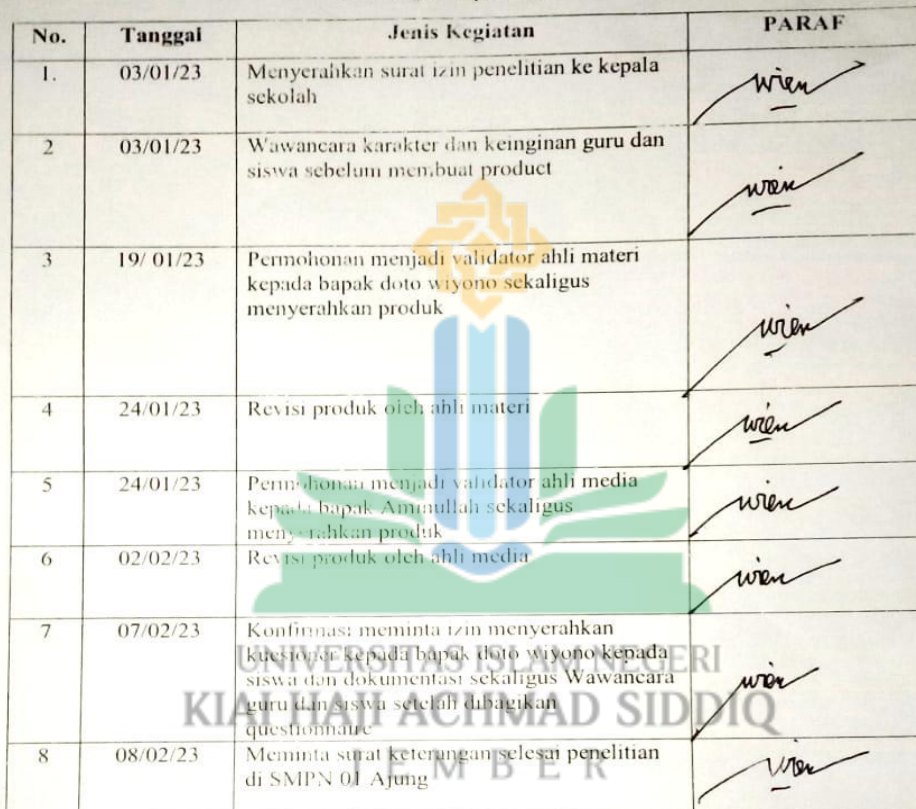 No. Tanggal Jenis Kegiatan PARAF
1. 03/01/23 Menyerahkan surat izin penelitian ke kepala
sekolah
wien
2 03/01/23 Wawancara karakter dan keinginan guru dan
siswa sebelum membuat product
wien
3 19/ 01/23 Permohonan menjadi validator ahli materi
kepada bapak doto wiyono sekaligus
menyerahkan produk
wien
4 24/01/23 Revisi produk oleh ahli materi
wien
5 24/01/23 Permohonan menjadi validator ahli media
kepada bapak Aminullah sekaligus
menyerahkan produk
wien
6 02/02/23 Revisi produk oleh ahli media
wien
7 07/02/23 Konfirmasi meminta izin menyerahkan
kuesioner kepada bapak doto wiyono kepada
siswa dan dokumentasi sekaligus Wawancara
guru dan siswa setelah dibagikan
questionnaire
wien
8 08/02/23 Meminta surat keterangan selesai penelitian
di SMPN 01 Ajung
wien
UNIVERSITAS ISLAM NEGERI
KIAI HAJI ACHMAD SIDDIQ
JEMBER